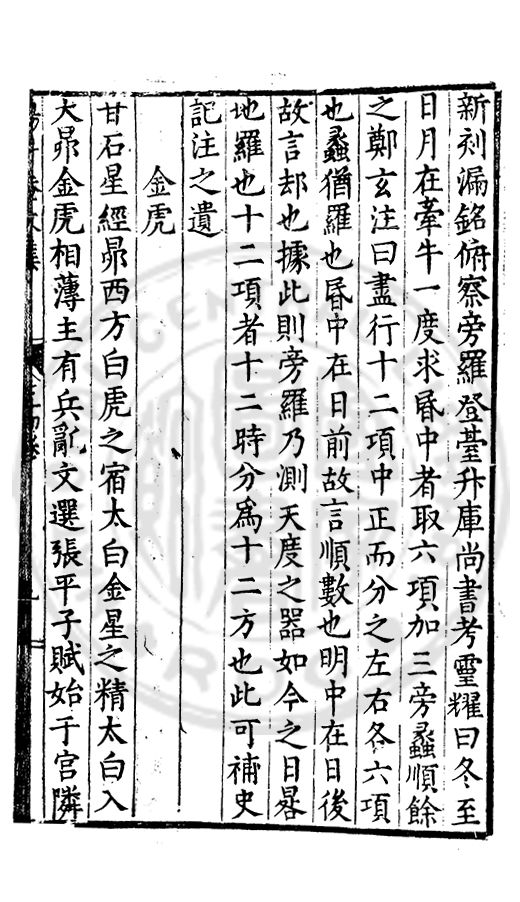 新刻漏銘俯察旁羅登臺升庫尚書考靈耀曰冬至
日月在牽牛一度求昏中者取六項加三旁蠡順餘
之鄭玄注曰盡行十二項中正而分之左右各六項
也蠡猶羅也昏中在日前故言順數也明中在日後
故言却也據此則旁羅乃測天度之器如今之日晷
地羅也十二項者十二時分爲十二方也此可補史
記注之遺
金虎
甘石星經昴西方白虎之宿太白金星之精太白入
大昴金虎相薄主有兵亂文選張平子賦始于宮隣